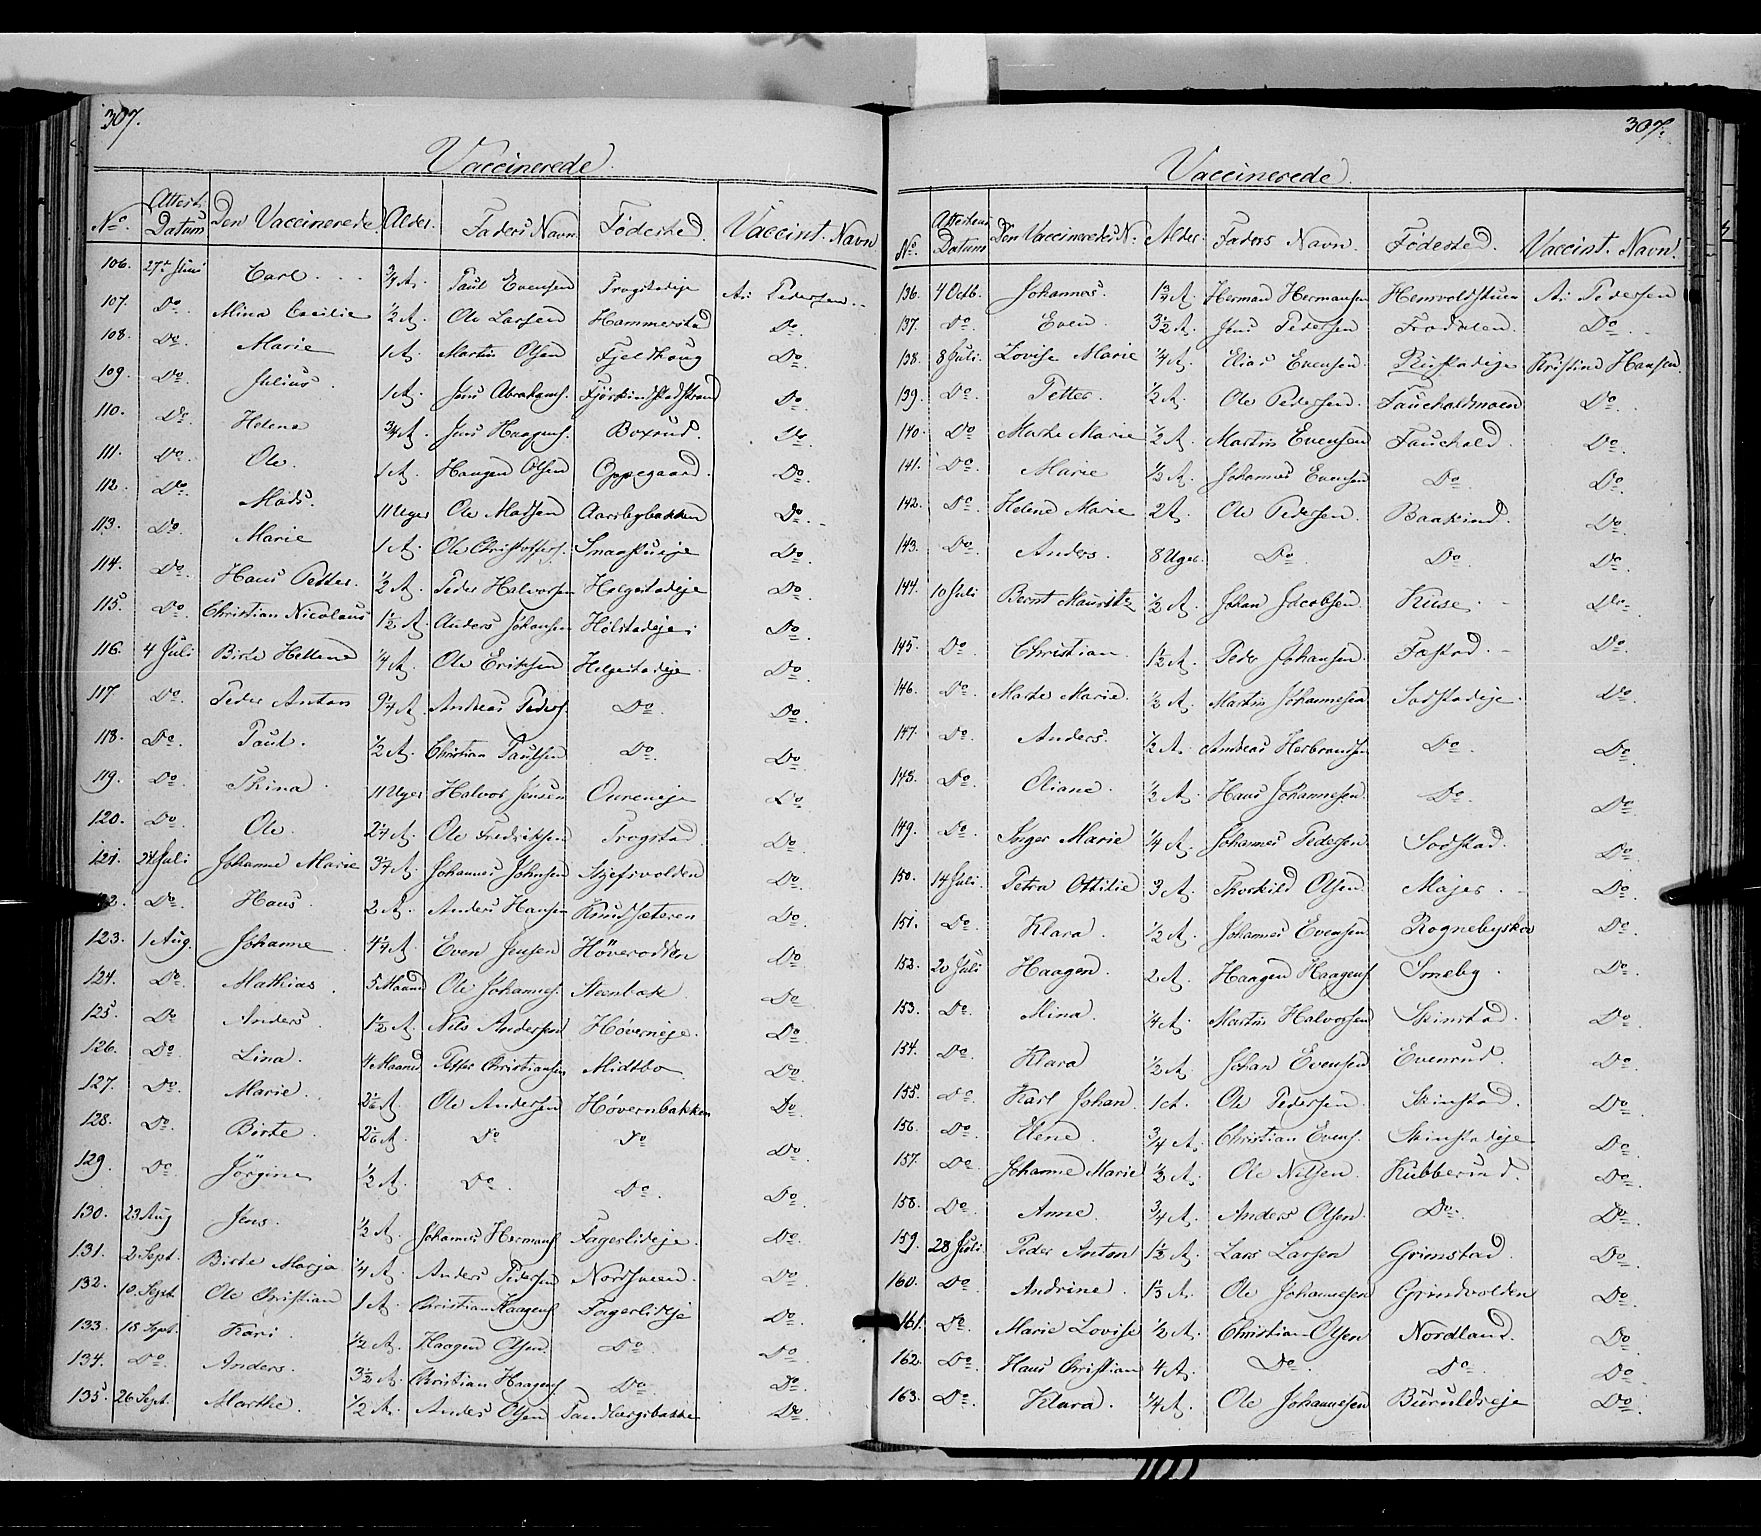 307.
Vaccinerede.
No. Attest. Datum Den Vaccinerede Alder. Faders Navn Födested. Vaccint. Navn
106. 27de Juni Carl 3/4 A. Paul Evensen Trogstadeje A: Pedersen
107. Do. Mina Cecilie 1/2 A. Ole Larsen Hammerstad Do.
108. Do. Marie 1 A. Martin Olsen Fjeldhoug Do.
109. Do. Julius. 1 A. Jens Abrahams. Do.
110. Do. Helene 3/4 A. Jens Haagens. Boxrud. Do.
111. Do. Ole. 1 A. Haagen Olsen Oppegaard. Do.
112. Do. Mads. 11 Uger Ole Madsen Aarsbybakken Do.
113. Do. Marie 1 A. Ole Christoffers. Do.
114. Do. Hans Petter. 1/2 A. Peder Halvorsen Helgestadeje Do.
115. Do. Christian Nicolaus 1 1/2 A. Anders Johansen Holstadeje Do.
116. 4 Juli Birte Hellene 1/4 A. Ole Eriksen Helgestadeje. Do.
117. Do. Peder Anton 9 1/4 A. Andreas Peders. Do. Do.
118. Do. Paul. 1/2 A. Christian Paulsen Do. Do.
119. Do. Thina. 11 Uger Halvor Jensen Oureneje Do.
120. Do. Ole. 2 1/4 A. Ole Fredriksen Trogstad. Do.
121. 24 Juli Johanne Marie 3 1/4 A. Johannes Johnsen Do.
Do. Hans. 2 A. Anders Hansen Knudsæteren Do.
123. 1 Aug. Johanne 4 1/4 A. Even Jensen Höverodden Do.
124. Do. Mathias. 5 Maaned Ole Johannes. Steenbæk Do.
125. Do. Anders. 1 1/2 A. Nils Andersen Höverneje. Do.
126. Do. Lina. 4 Maaned Petter Christiansen Midtbo. Do.
127. Do. Marie. 2 1/6 A. Ole Andersen Hövernbakken Do
128. Do. Birte. 2 1/6 A. Do Do. Do.
129. Do. Jörgine 1/2 A. Do. Do. Do.
130. 23 Aug Jens. 1/2 A. Johannes Hermans. Fagerlideje. Do.
131. 2 Sept. Birte Marja 1/4 A. Anders Pedersen Nordsveen. Do.
132. 10 Sept. Ole Christian 1 A. Christian Haagens. Fagerlideje Do.
133. 18 Sept. Kari. 1/2 A. Haagen Olsen. Do. Do.
134. Do. Anders. 3 1/2 A. Christian Haagens. Do. Do.
135. 26 Sept. Marthe. 1/2 A. Anders Olsen Do.
307.
Vaccinerede.
No. Attestens Datum Den Vaccineredes N. Alder. Faders Navn. Födested. Vaccint. Navn.
136. 4 Octb. Johannes. 1 3/4 A. Herman Hermansen Hemvoldstuen A: Pedersen
137. Do. Even. 3 1/2 A. Jens Pedersen Frodalen. Do.
138. 8 Juli. Lovise Marie 1/4 A. Elias Evensen Rustadeje Kristine Hansen.
139. Do. Petter. 1/2 A. Ole Pedersen. Fauchaldmoen Do.
140. Do. Marte Marie 1/2 A. Martin Evensen Fauchald. Do.
141. Do. Marie 1/2 A. Johannes Evensen Do. Do.
142. Do. Helene Marie 2 A. Ole Pedersen. Baakind. Do.
143. Do. Anders. 8 Uger. Do. Do. Do.
144. 10 Juli Bernt Mauritz 1/2 A. Johan Jacobsen. Kuse Do.
145. Do. Christian. 1 1/2 A. Peder Johansen. Fastad. Do.
146. Do. Marte Marie. 1/2 A. Martin Johannesen Sodstadeje. Do.
147. Do. Anders. 1/2 A. Andreas Herbransen Do. Do.
148. Do. Oliane. 1/2 A. Hans Johannesen. Do. Do.
149. Do. Inger Marie 1/4 A. Johannes Pedersen Sodstad. Do.
150. 14 Juli. Petra Ottilie 3 A. Thorkild Olsen. Majer. Do.
151. Do. Klara. 1/2 A. Johannes Evensen Do.
152. 20 Juli Haagen. 2 A. Haagen Haagens. Smeby. Do.
153. Do. Mina. 1/4 A. Martin Halvorsen Skinstad. Do.
154. Do. Klara 1/2 A. Johan Evensen Evenrud. Do.
155. Do. Karl Johan. 1 A. Ole Pedersen. Skinstad. Do.
156. Do. Elene. 3/4 A. Christian Evens. Skinstadeje Do.
157. Do. Johanne Marie 1/2 A. Ole Nilsen Kubberud. Do.
158. Do. Anne. 3/4 A. Anders Olsen. Do. Do.
159. 28 Juli. Peder Anton 1 1/2 A. Lars Larsen Grimstad. Do.
160. Do. Andrine. A. Ole Johannesen Grindvolden Do.
161. Do. Marie Lovise 1/2 A. Christian Olsen Nordland. Do.
162. Do. Hans Christian 4 A. Do. Do. Do.
163. Do. Klara. 1/4 A. Ole Johannesen Buruldseje Do.